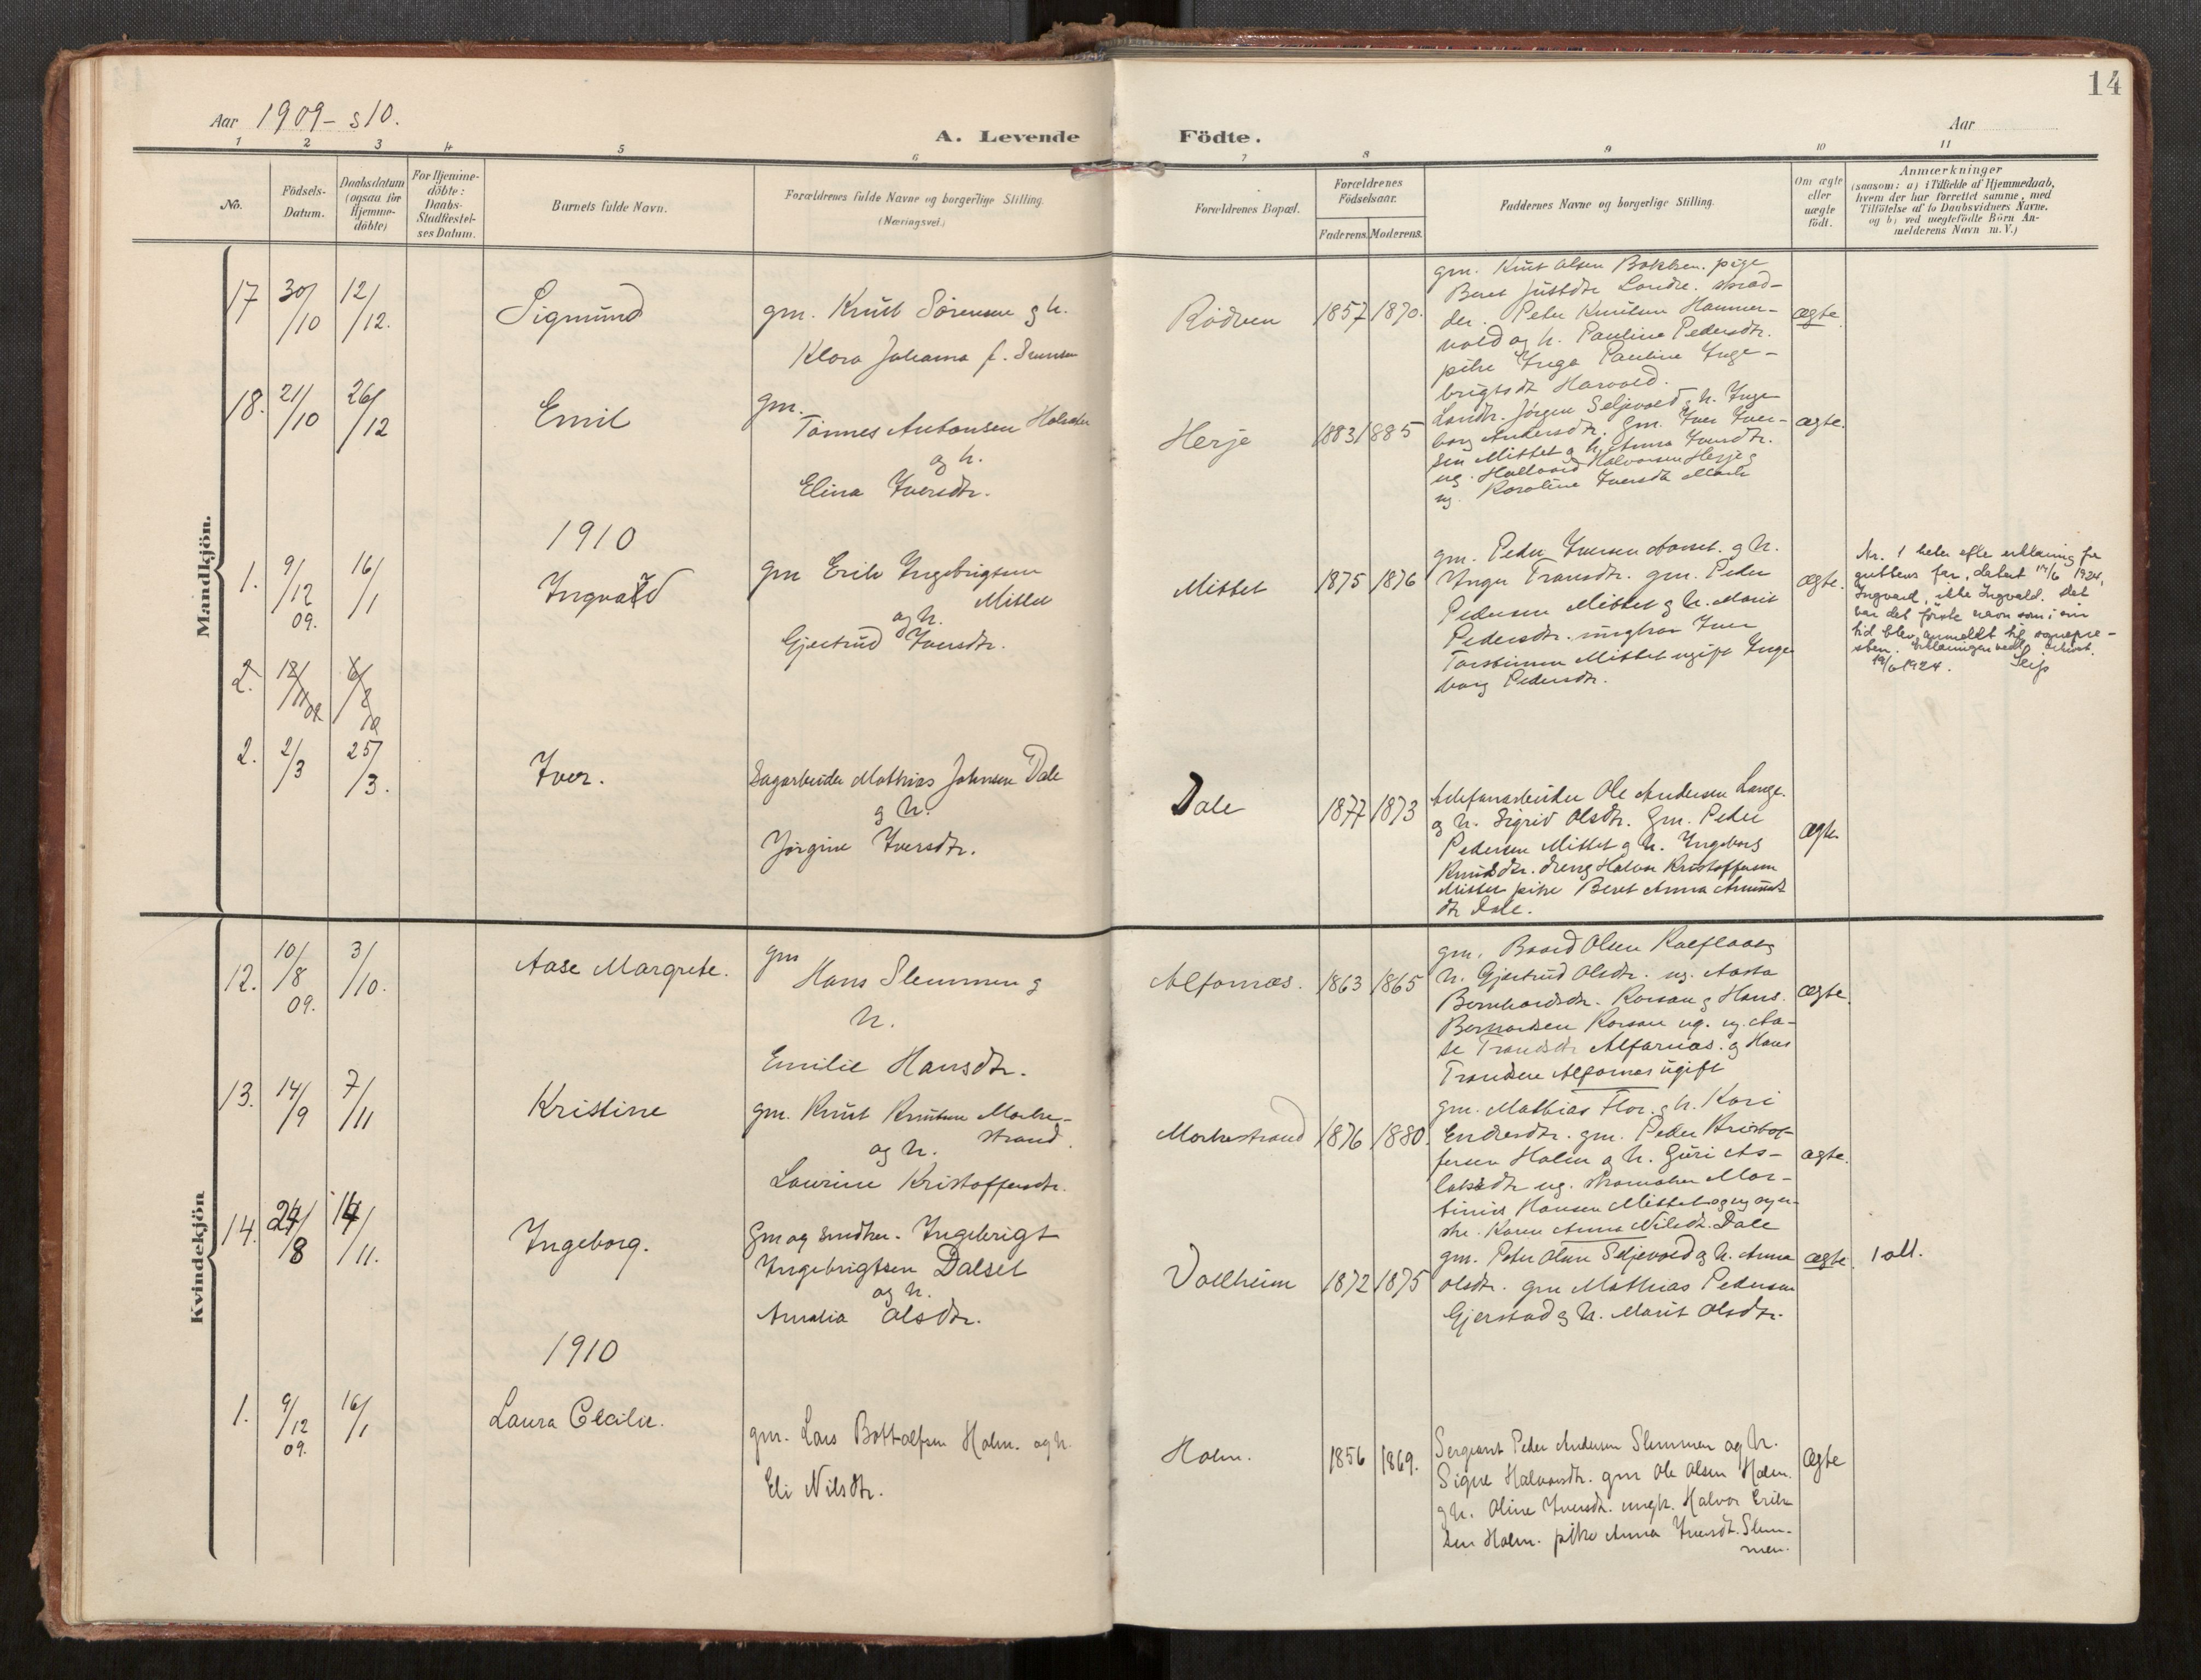 14
Aar 1909 - s10.
A. Levende Födte.
Aar
1 2 3 4 5 6 7 8 9 10 11
No.
Födsels-
Datum.
Daabsdatum
(ogsaa for
Hjemme-
döbte)
For Hjemme-
döbte:
Daabs-
Stadfæstel-
ses Datum.
Barnets fulde Navn.
Forældrenes fulde Navne og borgerlige Stilling.
(Næringsvei.)
Forældrenes Bopæl.
Forældrenes
Födselsaar.
Faderens. Moderens.
Faddernes Navne og borgerlige Stilling.
Om ægte
eller
uægte
födt.
Anmærkninger
(saasom: a) i Tilfælde af Hjemmedaab,
hvem der har forrettet samme, med
Tilföielse af to Daabsvidners Navne.
og b) ved uægtefödte Börn An-
melderens Navn m. V.)
Mandkjön.
17 30/10 12/12. Sigmund
gm. Knut Sørensen g h.
Klara Johanna f.
Rødven 1857 1870. ægte.
gm. Knut Olsen Bakken. pige
Beret Justdtr
der. Peter Knutsen Hammer-
vold og h. Pauline Pedersdtr.
pike Inga Pauline Inge-
brigtsdtr
18. 21/10 26/12 Emil
gm.
Tønnes Antonsen
og h.
Elina Iversdtr.
Herje 1883 1885 ægte.
Jørgen Seljevold g h. Inge
borg Andersdtr. Gm. Iver Iver-
sen Mittet g h. Anna Iversdtr.
ug. Hallvard Halvorsen Herje g
ug. Karoline Iversdtr
1910
1. 9/12 09. 16/1 Ingvald
gm Erik Ingebrigtsen
Mittet
og h.
Gjertrud Iversdtr.
Mittet 1875 1876 ægte.
gm. Peder Iversen g h.
Inger Transdtr. gm. Peder
Pedersen Mittet g h. Marit
Pedersdtr. ungkar Iver
Torstensen Mittet ugift Inge
borg Pedersdtr.
Nr. 1 heter efter erklæring fra
guttens far, datert 17/6 1924,
Ingvard, ikke Ingvald. Det
var det første navn som i sin
tid blev anmeldt til sognepre-
sten. Erklæringen vedl.
19/6 1924.
2. 12/11 09 6/2 10
2. 2/3 25/3. Iver.
Sagarbeider Mathias Johnsen Dale
g h.
Jørgine Iversdtr.
Dale 1877 1873 ægte.
Telefonarbeider Ole Andersen Lange.
og h. Sigrid Olsdtr. Gm. Peder
Pedersen Mittet g h. Ingeborg
Knutsdtr. dreng Halvor Kristoffersen
Mittet pike Beret Anna
dtr Dale.
Kvindekjön
12. 10/8 09. 3/10. Aase Margrete.
gm
Hans Slemmen g
h.
Emilie Hansdtr.
Alfarnæs. 1863 1865 ægte.
gm. Baard Olsen
h. Gjertrud Olsdtr. ug. Aasta
Bernhardsdtr. g Hans
Bernhardsen ug. ug. Aa-
se Transdtr Alfarnæs. g Hans
Transen Alfarnæs ugift
13. 14/9 7/11 Kristine
gm. Knut Knutsen Morke-
strand.
og h.
Laurine Kristoffersdtr.
Morkestrand 1876 1880. ægte.
gm. Mathias Flor. g h. Kari
Endresdtr. gm. Peder Kristof-
fersen Holm g h. Guri As-
laksdtr ug. skomaker Mar-
tinus Hansen Mittet og ug syer-
ske. Karen Anna Nilsdtr. Dale
14. 24/8 14/11. Ingeborg.
Gm og Ingebrigt
Ingebrigtsen Dalset
og h.
Amalia Olsdtr.
Vollheim 1872 1875 ægte. 1 all.
gm. Peter Olsen Seljevold g h. Anna
Olsdtr. gm Mathias Pedersen
Gjerstad g h. Marit Olsdtr.
1910
1. 9/12 09. 16/1 Laura Cecilie.
gm. Lars Bottolfsen Holm. og h.
Eli Nilsdtr.
Holm. 1856 1869. ægte
Sergeant Peder Andersen Slemmen og h.
Signe Halvorsdtr. gm Ole Olsen Holm.
g h. Oline Iversdtr. ungk. Halvor Erik-
sen Holm. pike Anna Iversdt. Slem-
men.